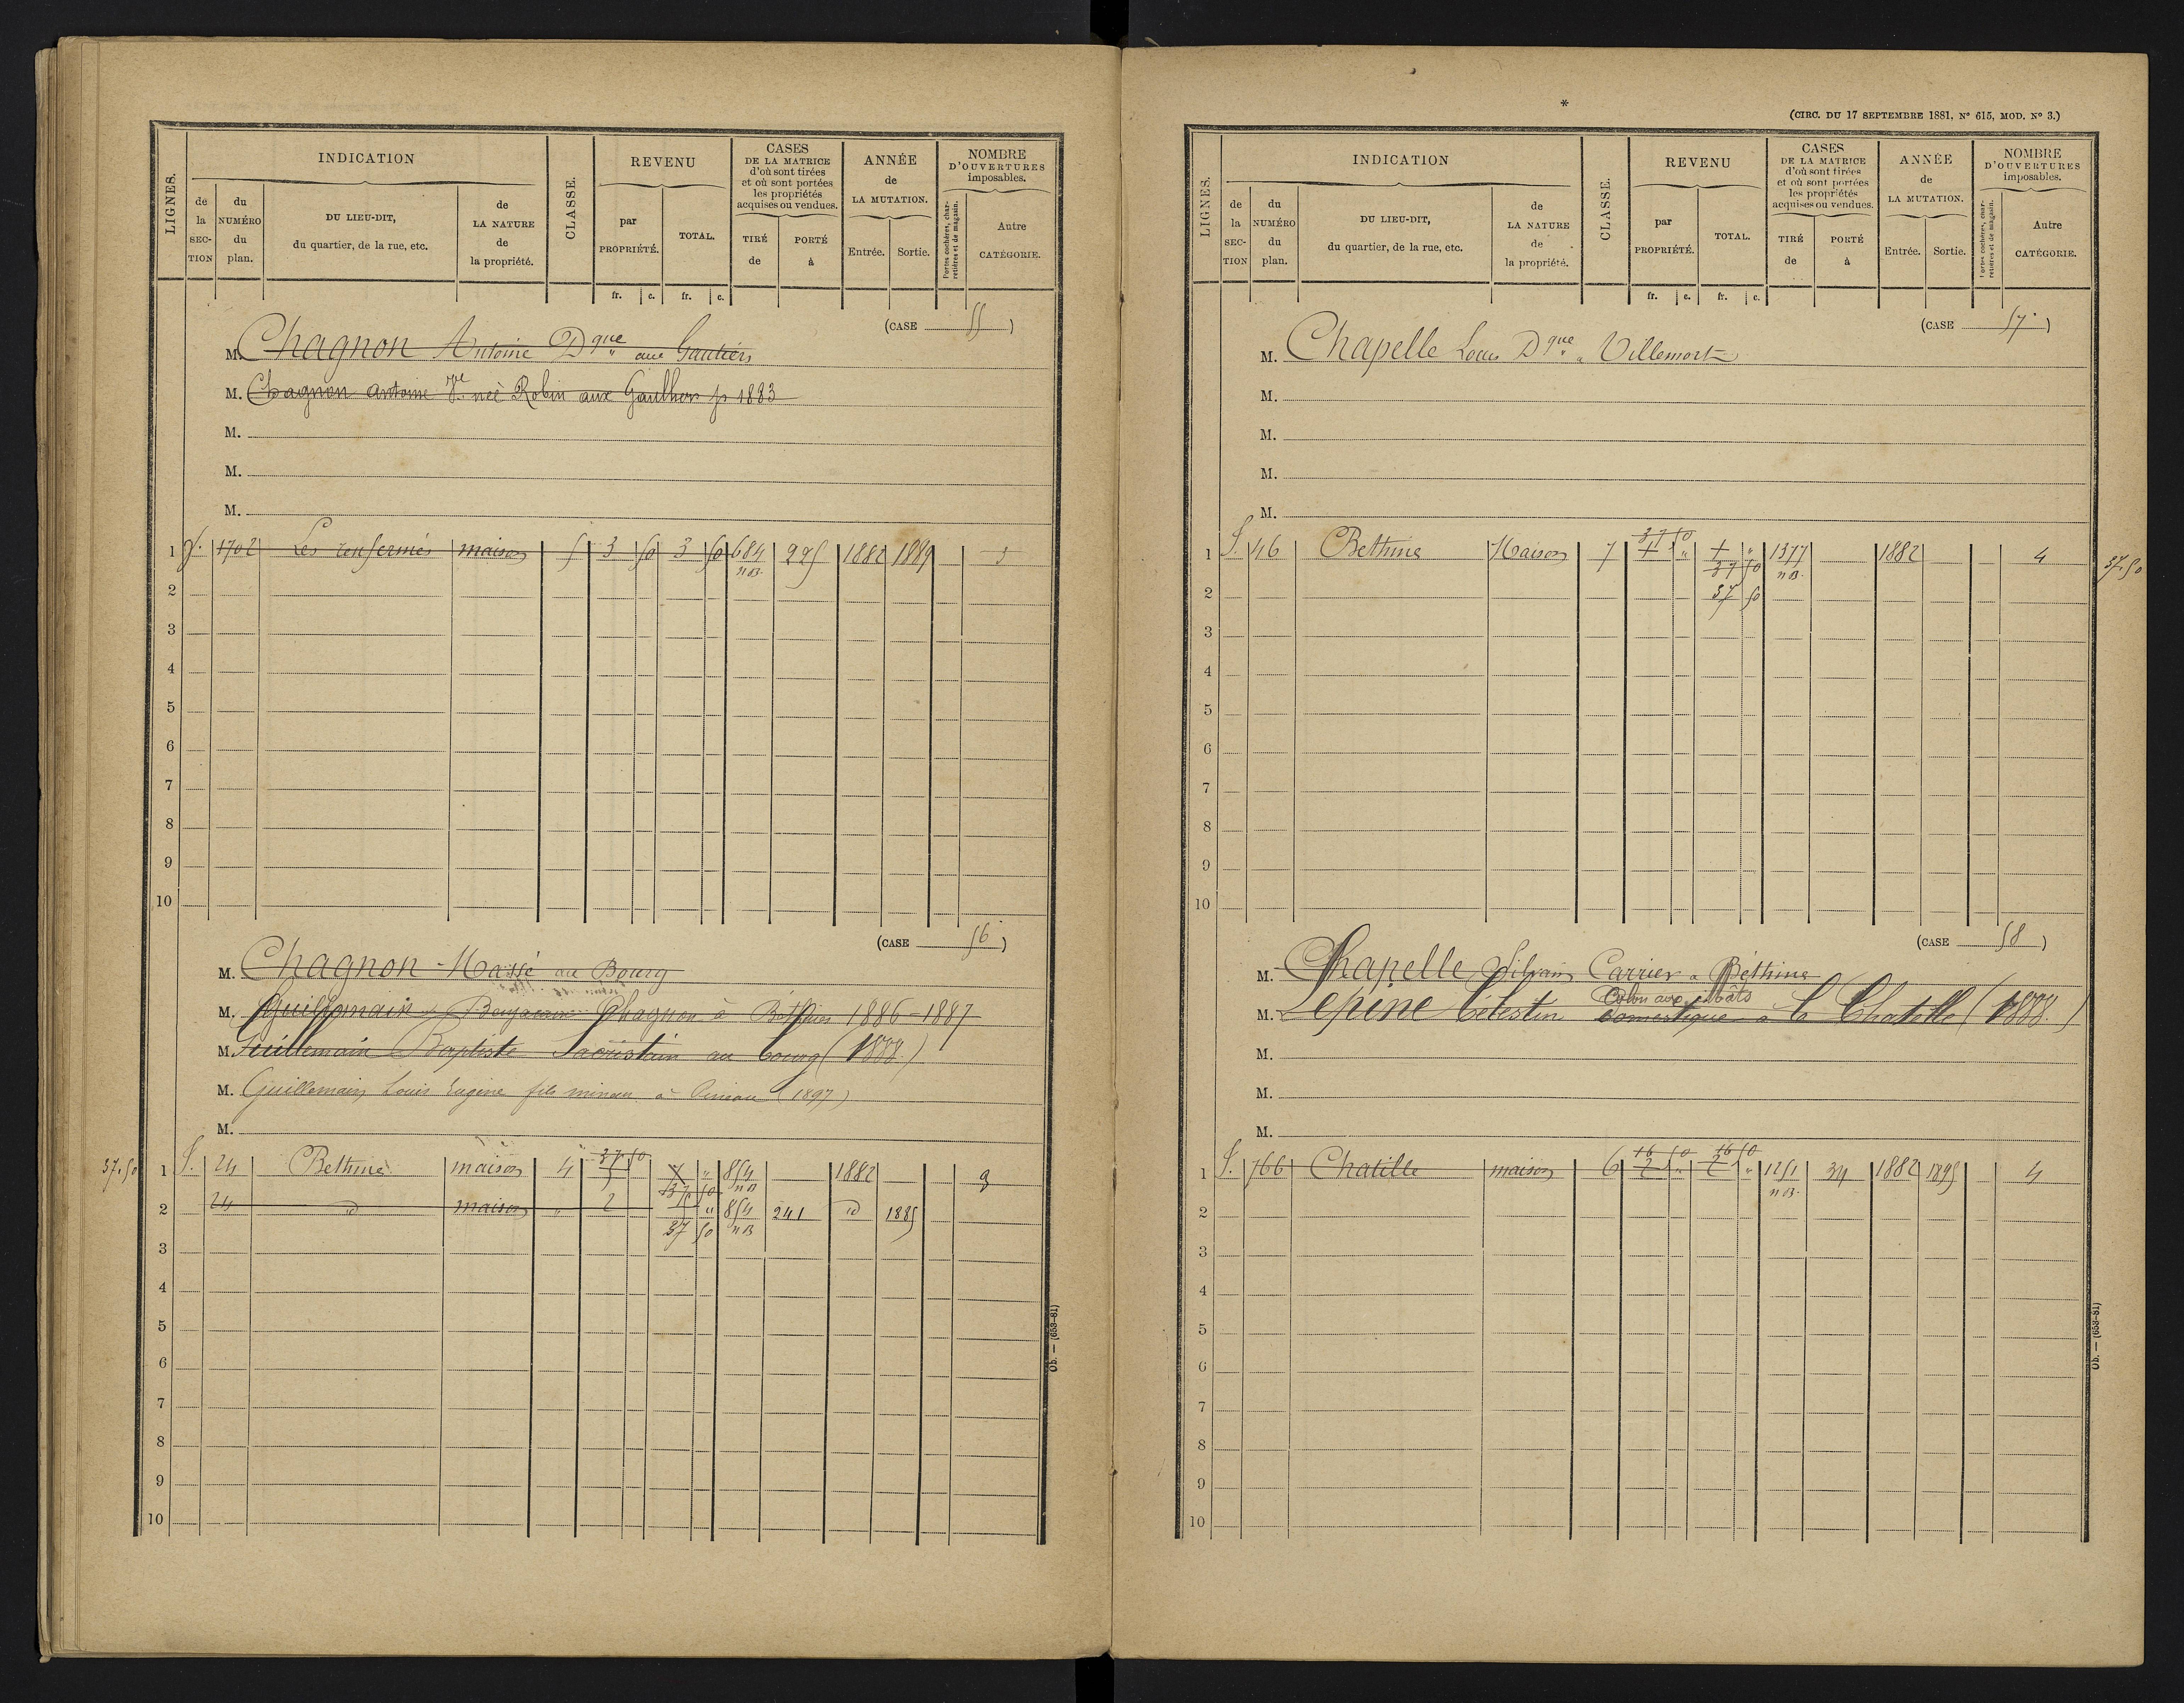 LIGNES.
INDICATION
de la SECTION
du NUMÉRO du plan.
DU LIEU-DIT, du quartier, de la rue, etc.
de LA NATURE de la propriété.
CLASSE.
REVENU
par PROPRIÉTÉ.
TOTAL.
fr. c. fr. c.
CASES DE LA MATRICE d'où sont tirées et où sont portées les propriétés acquises ou vendues.
TIRÉ de
PORTÉ à
ANNÉE de LA MUTATION.
Entrée. Sortie.
NOMBRE D'OUVERTURES imposables.
Portes cochères, charretières et de magasin.
Autre CATÉGORIE.
(CASE 55)
M. Chagnon Antoine Dque aux Gautiers
M. Chagnon Antoine Ve née Robin aux Gaulthiers pr 1883
M.
M.
M.
1 1702 Les renfermés maison 5 3 50 3 50 684 nB. 225 1882 1889 3
2
3
4
5
6
7
8
9
10
(CASE 56)
M. Chagnon-Massé au Bourg
M. Guillemain Benjamin Chagnon à Bethines 1886-1887
M. Guillemain Baptiste Sacristain au bourg (1888)
M. Guillemain Louis Eugène fils mineur à (1897)
M.
37.50 1 S. 24 Bethines maison 4 37 50 37 50 854 nB 1882
2 24 id maison " 2 " 854 nB 241 id 1885
37 50
3
4
5
6
7
8
9
10
Ob. — (653-81)
*
(CIRC. DU 17 SEPTEMBRE 1881, N° 615, MOD. N° 3.)
LIGNES.
INDICATION
de la SECTION
du NUMÉRO du plan.
DU LIEU-DIT, du quartier, de la rue, etc.
de LA NATURE de la propriété.
CLASSE.
REVENU
par PROPRIÉTÉ.
TOTAL.
fr. c. fr. c.
CASES DE LA MATRICE d'où sont tirées et où sont portées les propriétés acquises ou vendues.
TIRÉ de
PORTÉ à
ANNÉE de LA MUTATION.
Entrée. Sortie.
NOMBRE D'OUVERTURES imposables.
Portes cochères, charretières et de magasin.
Autre CATÉGORIE.
(CASE 57)
M. Chapelle Louis Dque à Villemort
M.
M.
M.
M.
1 S. 46 Bethines Maison 7 37 50 37 50 1377 nB. 1882 4 37.50
2 37 50
3
4
5
6
7
8
9
10
(CASE 58)
M. Chapelle Silvain Carrier à Béthines
Colon aux bâts
M. Lépine Célestin domestique à la Chatille (1888.)
M.
M.
M.
1 S. 766 Chatille maison 6 16 50 16 50 2 " 2 " 1251 nB. 34 1882 1895 4
2
3
4
5
6
7
8
9
10
Ob. — (653-81)